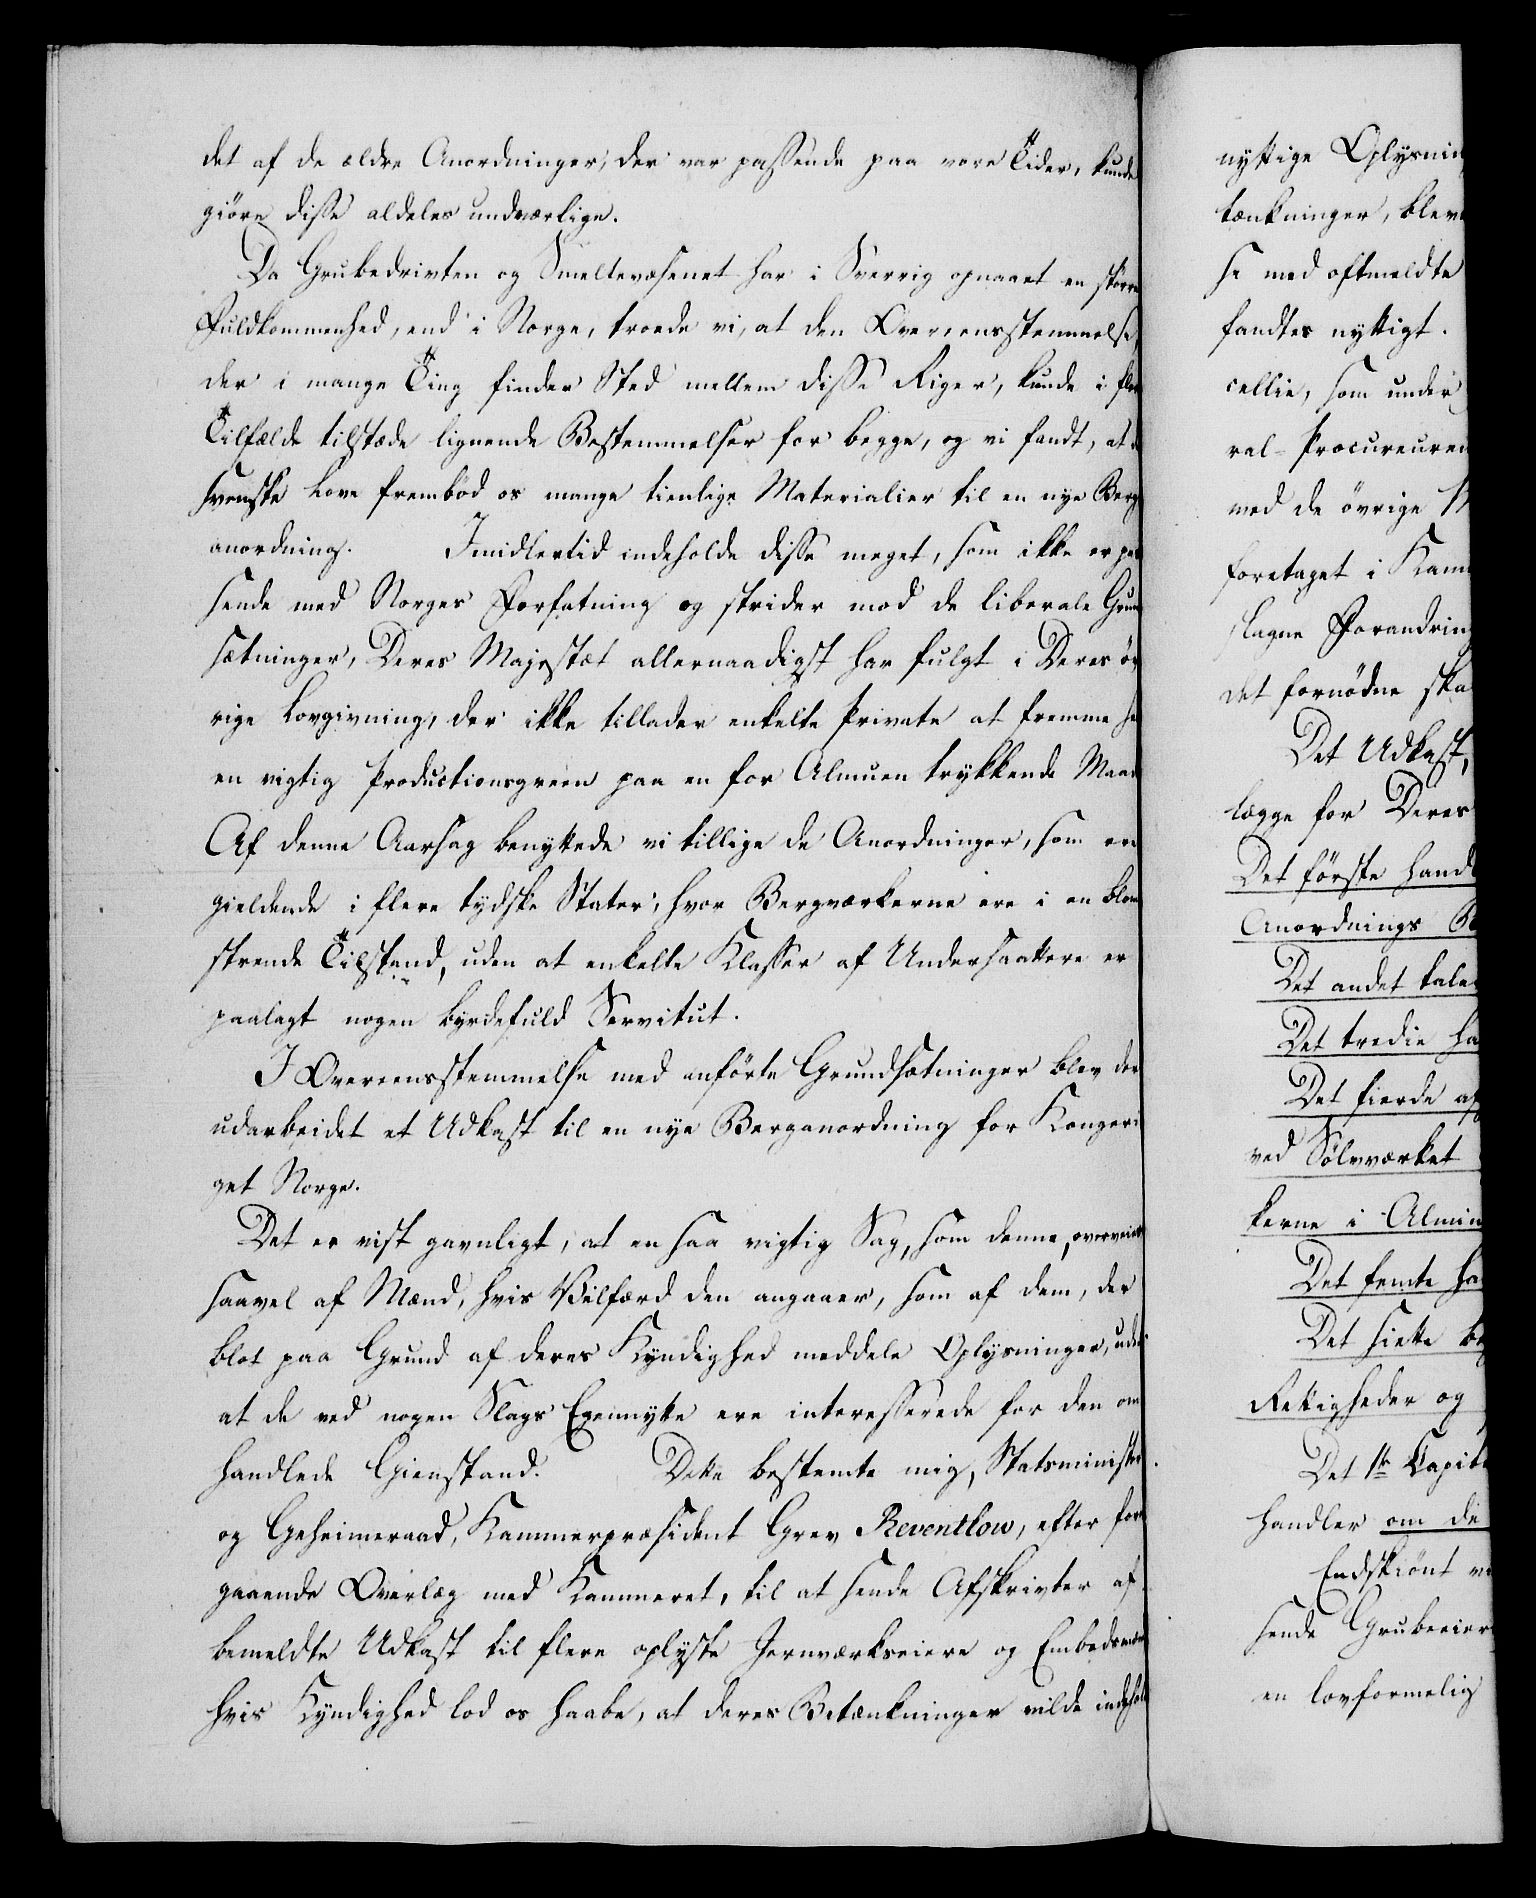 det af de ældre Anordninger, der var passende paa vore Tider, kunde
giöre disse aldeles undværlige.
Da Grubedriften og Smeltevæsenet har i Sverrig opnaaet en större
Fuldkommenhed, end i Norge, troede vi, at den Overeensstemmelse,
der i mange Ting finder Sted mellem disse Riger, kunde i fle
Tilfælde tilstæde lignende Bestemmelser for begge, og vi fandt, at
svenske Love frembød os mange tienlige Materialier til en nye Berg
anordning. Imidlertid indeholde disse meget, som ikke er pas
sende med Norges Forfatning og strider mod de liberale Grund
sætninger, Deres Majestæt allernaadigst har fulgt i Deres öv
rige Lovgivning, der ikke tillader enkelte Private at fremme
en vigtig Productionsgreen paa en for Almuen trykkende Maade
Af denne Aarsag benyttede vi tillige de Anordninger, som ere
gieldende i flere tydske Stater, hvor Bergværkerne ere i en blom
strende Tilstand, uden at enkelte Klasser af Undersaattere er
paalagt nogen byrdefuld Servitut.
I Overeensstemmelse med anförte Grundsætninger blev der
udarbeidet et Udkast til en nye Berganordning for Kongeri
get Norge.
Det er vist gavnligt, at en saa vigtig Sag, som denne, overveies
saavel af Mænd, hvis Velfærd den angaaer, som af dem, der
blot paa Grund af deres Kyndighed meddele Oplysninger, uden
at de ved nogen Slags Egennytte ere interesserede for den om
handlede Gienstand. Dette bestemte mig, Statsminister
og Geheimeraad, Kammerpræsident Grev Reventlow, efter for
gaaende Overlæg med Kammeret, til at sende Afskrivter af
bemeldte Udkast til flere oplyste Jernværkseiere og Embedsmænd
hvis Kyndighed lod os haabe, at deres Betænkninger vilde indehol
nyttige Oplysnin
tænkninger, blev
se med oftmeldte
fandtes nyttigt.
cellie, som under
ral-Procureuren
med de övrige
foretaget i Kam
slagne Forandring
det fornödne ska
Det Udkast,
lægge for Deres
Det förste handl
Anordnings B
Det andet tale
Det tredie ha
Det fierde af
ved Sölvværket
kerne i Almin
Det femte ha
Det siette be
Rettigheder og
Det 1te Capit
handler om de
Endskiönt
sende Grubeeier
en lovformelig